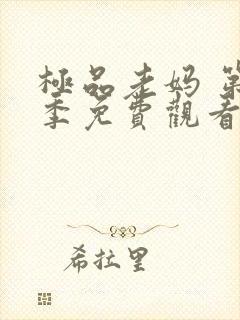 極品老妈 第
季免費觀看
希拉里